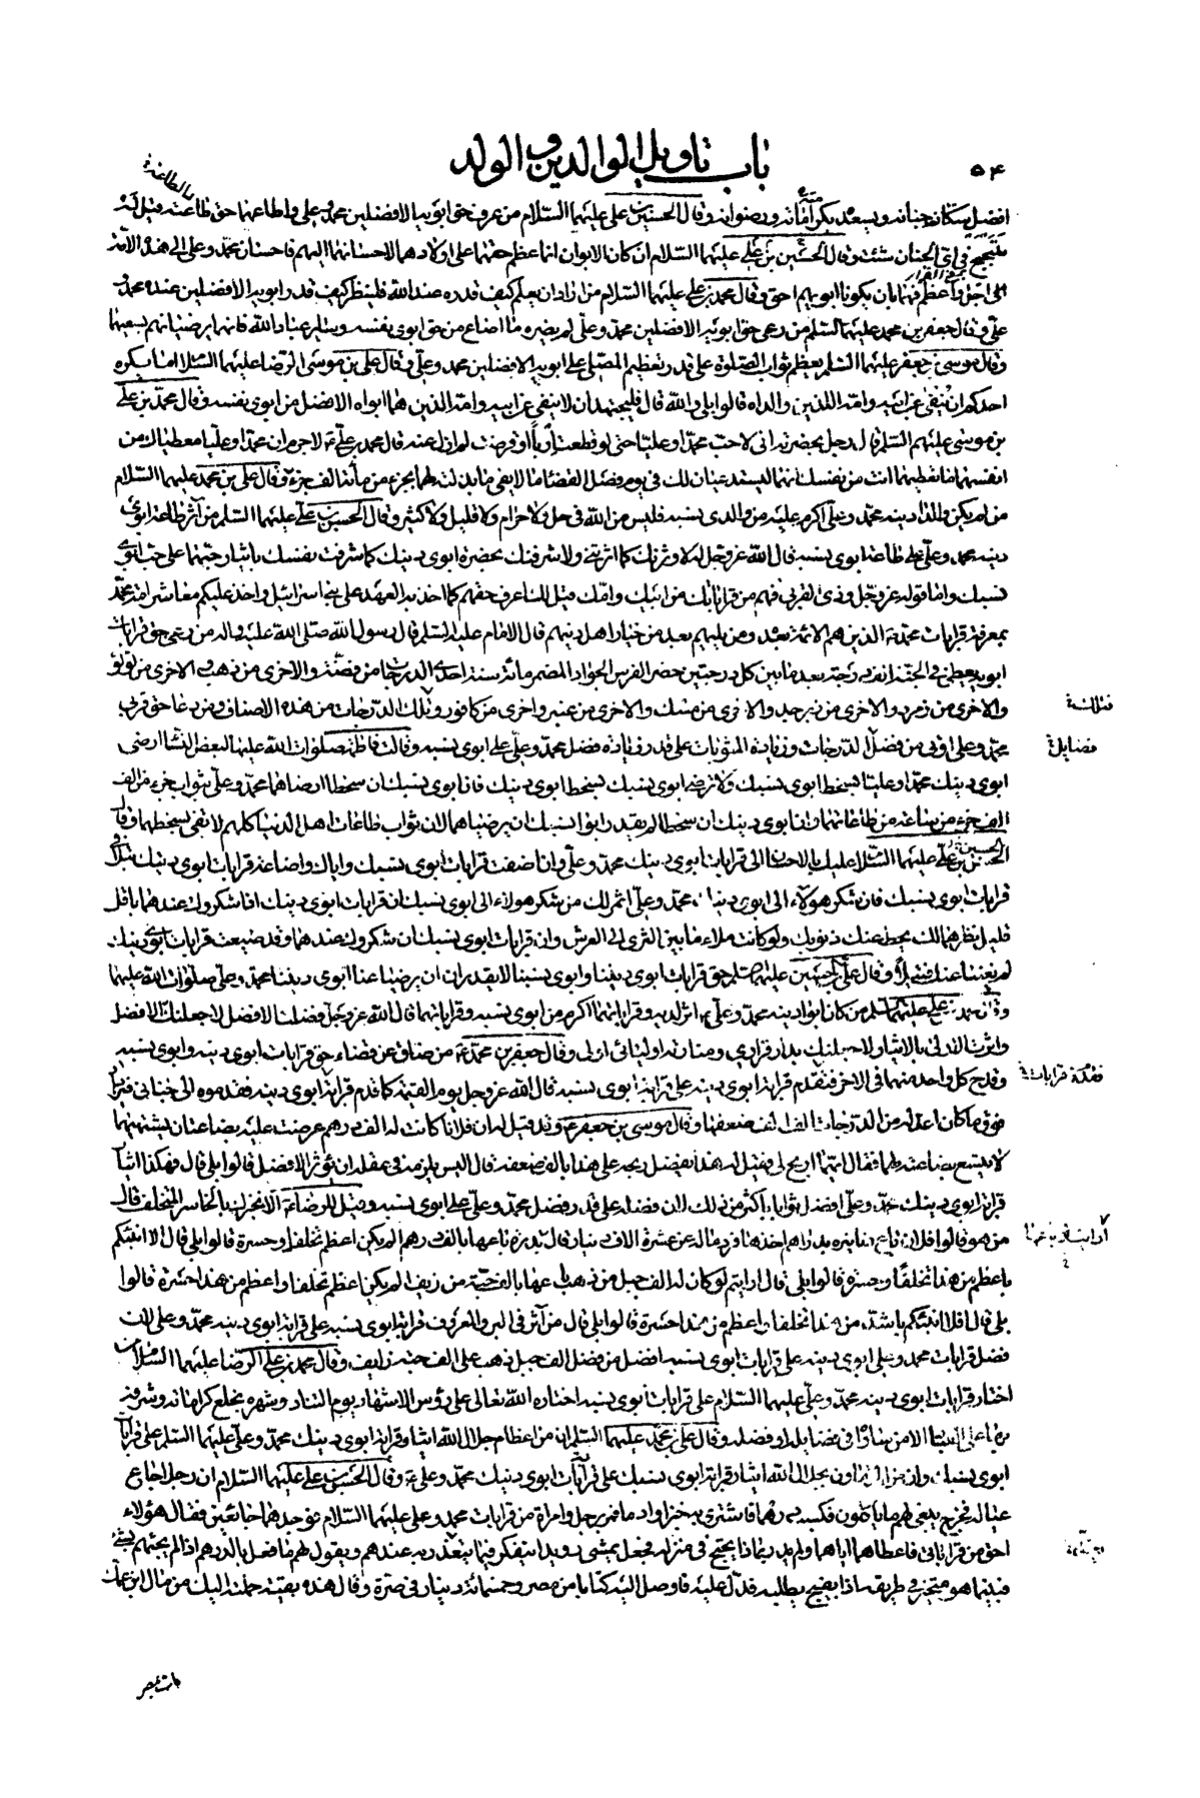 ٥٤
باب تاويل الوالدين والولد
بالطاعة
افضل سكان جنانه ويسعده بكراماته ورضوانه وقال الحسن بن علي عليهما السلام من عرف حق ابويه الافضلين محمد وعلي واطاعهما حق طاعته قيل له
تبحبح في اي الجنان شئت وقال الحسين بن علي عليهما السلام ان كان الابوان انما عظم حقهما على اولادهما لاحسانهما اليهم فاحسان محمد وعلي الى هذه الامة
اجل واعظم فهما بان يكونا ابويهم احق وقال محمد بن علي عليهما السلام من اراد ان يعلم كيف قدره عند الله فلينظر كيف قدر ابويه الافضلين عنده محمد
علي وقال جعفر بن محمد عليهما السلم من رعى حق ابويه الافضلين محمد وعلي لم يضره ما اضاع من حق ابوي نفسه وساير عباد الله فانهما يرضيانهم بسعيهما
وقال موسى بن جعفر عليهما السلم يعظم ثواب الصلوة على قدر تعظيم المصلي على ابويه الافضلين محمد وعلي وقال علي بن موسى الرضا عليهما السلام اما يكره
احدكم ان ينفى عن ابيه وامه اللذين ولداه قالوا بلى والله قال فليجتهد ان لا ينفى عن ابيه وامه الذين هما ابواه الافضل من ابوي نفسه وقال محمد بن علي
بن موسى عليهم السلم قال رجل بحضرته اني لاحب محمدا وعليا حتى لو قطعت اربا او قرضت لم ازل عنه قال محمد بن علي لا جرم ان محمدا وعليا معطياك من
انفسهما ما تعطيهما انت من نفسك انهما ليستدعيان لك في يوم فصل القضا ما لا يفي ما بذلت لهما بجزء من مائة الف جزء وقال علي بن محمد عليهما السلام
من لم يكن والدا دينه محمد وعلي اكرم عليه من والدي نسبه فليس من الله في حل ولا حرام ولا قليل ولا كثير وقال الحسن بن علي عليهما السلم من آثر طاعة ابوي
دينه محمد وعلي على طاعة ابوي نسبه قال الله عز وجل له لاوثرنك كما اثرتني ولاشرفنك بحضرة ابوي دينك كما شرفت نفسك بايثار حبهما على حب ابوي
نسبك واما قوله عز وجل وذي القربى فهم من قراباتك من ابيك وامك قيل لك اعرف حقهم كما اخذ به العهد على بني اسرائيل واخذ عليكم معاشر امة محمد
بمعرفة قرابات محمد الذين هم الائمة بعده ومن يليهم بعد من خيار اهل دينهم قال الامام عليه السلم قال رسول الله صلى الله عليه واله من رعى حق قرابات
ابويه اعطي في الجنة الف درجة بعد ما بين كل درجتين حضر الفرس الجواد المضمر مائة سنة احدى الدرجات من فضة والاخرى من ذهب والاخرى من لؤلؤ
والاخرى من زمرد والاخرى من زبرجد والاخرى من مسك والاخرى من عنبر واخرى من كافور وتلك الدرجات من هذه الاصناف ومن رعا حق قربى
محمد وعلي اوتي من فضل الدرجات وزيادة المثوبات على قدر زيادة فضل محمد وعلي على ابوي نسبه وقالت فاطمة صلوات الله عليها لبعض النساء ارضي
ابوي دينك محمدا وعليا بسخط ابوي نسبك ولا ترضي ابوي نسبك بسخط ابوي دينك فان ابوي نسبك ان سخطا ارضاهما محمد وعلي بثواب جزء من الف
الف جزء من ساعة من طاعاتهما وان ابوي دينك ان سخطا لم يقدر ابوا نسبك ان يرضياهما لان ثواب طاعات اهل الدنيا كلهم لا تفي بسخطهما وقال
الحسن بن علي عليهما السلام عليك بالاحسان الى قرابات ابوي دينك محمد وعلي وان اضعت قرابات ابوي نسبك واياك واضاعة قرابات ابوي دينك بتلافي
قرابات ابوي نسبك فان شكر هؤلاء الى ابوي دينك محمد وعلي اثمر لك من شكر هولاء الى ابوي نسبك ان قرابات ابوي دينك اذا شكروك عندهما باقل
قليل نظرهما لك يحط عنك ذنوبك ولو كانت ملاء ما بين الثرى الى العرش وان قرابات ابوي نسبك ان شكروك عندهما وقد ضيعت قرابات ابوي دينك
لم يغنيا عنك فتيلا وقال علي بن الحسين عليهما السلم حق قرابات ابوي ديننا وابوي نسبنا لا يقدران ان يرضيا عنا ابوي ديننا محمد وعلي صلوات الله عليهما
وقال محمد بن علي عليهما السلم من كان ابوا دينه محمد وعلي اثر لديه وقراباتهما اكرم من ابوي نسبه وقراباتهما قال الله عز وجل فضلت الافضل لاجعلنك الافضل
واثرت الاولى بالايثار لاجعلنك بدار قراري ومنادمة اوليائي اولى وقال جعفر بن محمد من ضاق عن قضاء حق قرابات ابوي دينه وابوي نسبه
وقدح كل واحد منهما في الاخر فقدم قرابة ابوي دينه على قرابة ابوي نسبه قال الله عز وجل يوم القيمة كما قدم قرابة ابوي دينه فقدموه الى جناني فيزداد
فوق ما كان اعد له من الدرجات الف الف ضعفها وقال موسى بن جعفر وقد قيل له ان فلانا كانت له الف درهم عرضت عليه بضاعتان يشتهيهما
لا يتسع بضاعته لهما فقال ايهما اربح لي فقيل له هذا يفضل ربحه على هذا بالف ضعف قال اليس يلزمه في عقله ان يؤثر الافضل قالوا بلى قال فهكذا ايثار
قرابة ابوي دينك محمد وعلي افضل ثوابا باكثر من ذلك لان فضله على قدر فضل محمد وعلي على ابوي نسبه وقيل للرضا الا نخبرك بالخاسر المتخلف قال
من هو قالوا فلان باع دنانيره بدراهم اخذها فرد ماله عن عشرة الاف دينار قال بدرة باعها بالف درهم الم يكن اعظم تخلفا وحسرة قالوا بلى قال الا انبئكم
باعظم من هذا تخلفا وحسرة قالوا بلى قال ارايتم لو كان له الف جبل من ذهب باعها بالف حبة من زيف الم يكن اعظم تخلفا واعظم من هذا حسرة قالوا
بلى قال افلا انبئكم باشد من هذا تخلفا واعظم من هذا حسرة قالوا بلى قال من آثر في البر والمعروف قرابة ابوي نسبه على قرابة ابوي دينه محمد وعلي لان
فضل قرابات محمد وعلي ابوي دينه على قرابات ابوي نسبه افضل من فضل الف جبل ذهب على الف حبة زايف وقال محمد بن علي الرضا عليهما السلام من
اختار قرابات ابوي دينه محمد وعلي عليهما السلام على قرابات ابوي نسبه اختاره الله تعالى على رؤس الاشهاد يوم التناد وشهره بخلع كراماته وشرفه
بها على العباد الا من ساواه في فضايله او فضله وقال علي بن محمد عليهما السلم ان من اعظام جلال الله ايثار قرابة ابوي دينك محمد وعلي عليهما السلم على قرابات
ابوي نسبك وان من التهاون بجلال الله ايثار قرابة ابوي نسبك على قرابات ابوي دينك محمد وعلي وقال الحسن بن علي عليهما السلام ان رجلا جاع
عياله فخرج يبغي لهم ما ياكلون فكسب درهما فاشترى به خبزا وادما فمر برجل وامراة من قرابات محمد وعلي عليهما السلام فوجدهما جائعين فقال هؤلاء
احق من قراباتي فاعطاهما اياهما ولم يدر بماذا يحتج في منزله فجعل يمشي رويدا يتفكر فيما يعتذر به عندهم ويقول لهم ما فعل بالدرهم اذا لم يجئهم بشئ
فبينما هو متحير في طريقه اذا بفيج يطلبه فدل عليه فاوصل اليه كتابا من مصر وخمسمائة دينار في صرة وقال هذه بقيته حملت اليك من مال ابن عمك
فضايل
قرابات
مات بمصر